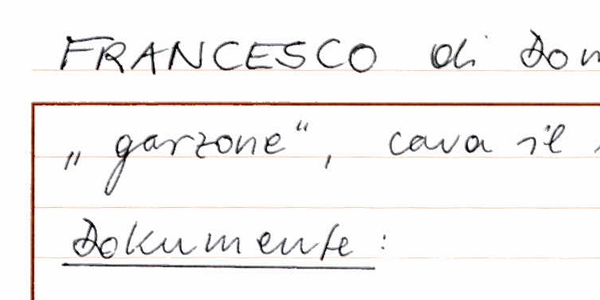 FRANCESCO di Don
„garzone“, cava il
Dokumente: